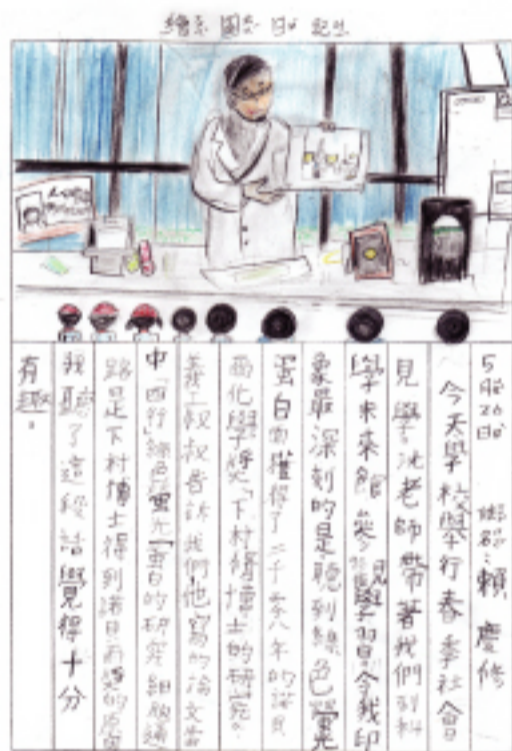 繪圖日記
5月20日 賴慶修
今天學校舉行春季社會
見學沈老師帶著我們到科
學未來館參見學習令我印
象最深刻的是聽到綠色螢光
蛋白而獲得了二千零八年的諾貝
爾化學獎「下村脩博士的研究。
義工叔叔告訴我們他寫的論文當
中「四行」綠色螢光「蛋白的研究
路是下村博士得到諾貝爾獎的原因
我聽了這段話覺得十分
有趣。